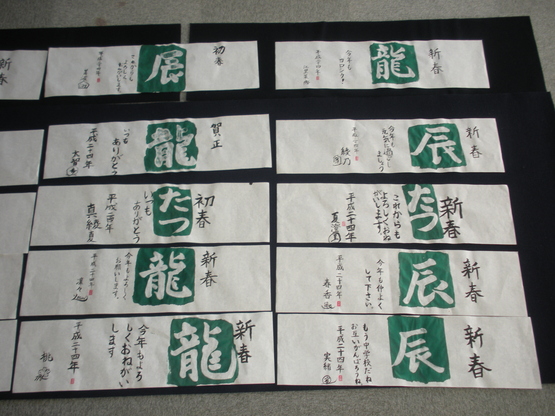 初春
辰
平成二十四年
新春
龍
今年も
ヨロシク!!
平成二十四年
賀正
龍
いつも
ありがとう
平成二十四年
大智
新春
辰
今年も
平成二十四年
綾乃
初春
たつ
いつも
ありがとう
平成二十四年
新春
たつ
これからも
よろしくおね
がいします。
平成二十四年
新春
龍
今年もよろしく
お願いします。
平成二十四年
新春
辰
今年も仲よく
して下さい。
平成二十四年
春香
新春
龍
今年もよろ
しくおねがい
します
平成二十四年
桃
新春
辰
もう中学校だね
お互いがんばろうね
平成二十四年
実結